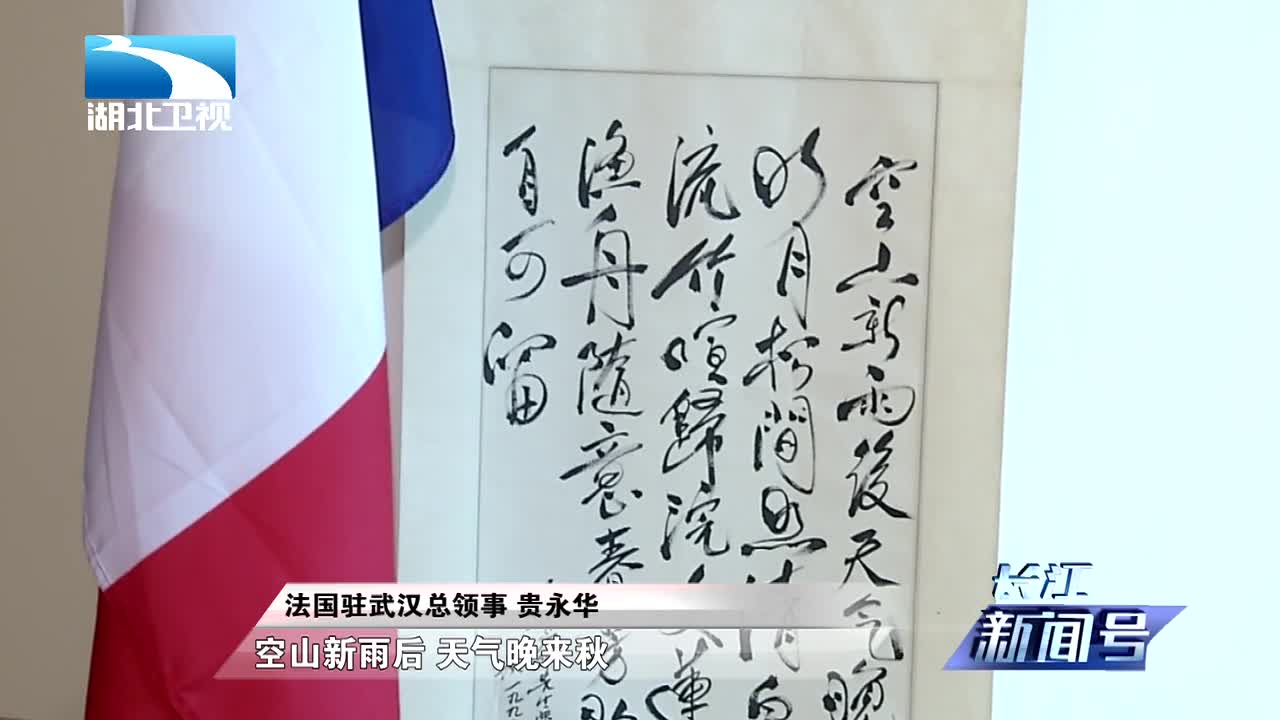 湖北卫视
空山新雨後天气晚
明月松間照清
流竹喧歸浣女蓮
漁舟隨意春芳歇
自可留
一九九
法国驻武汉总领事 贵永华
空山新雨后 天气晚来秋
长江
新闻号